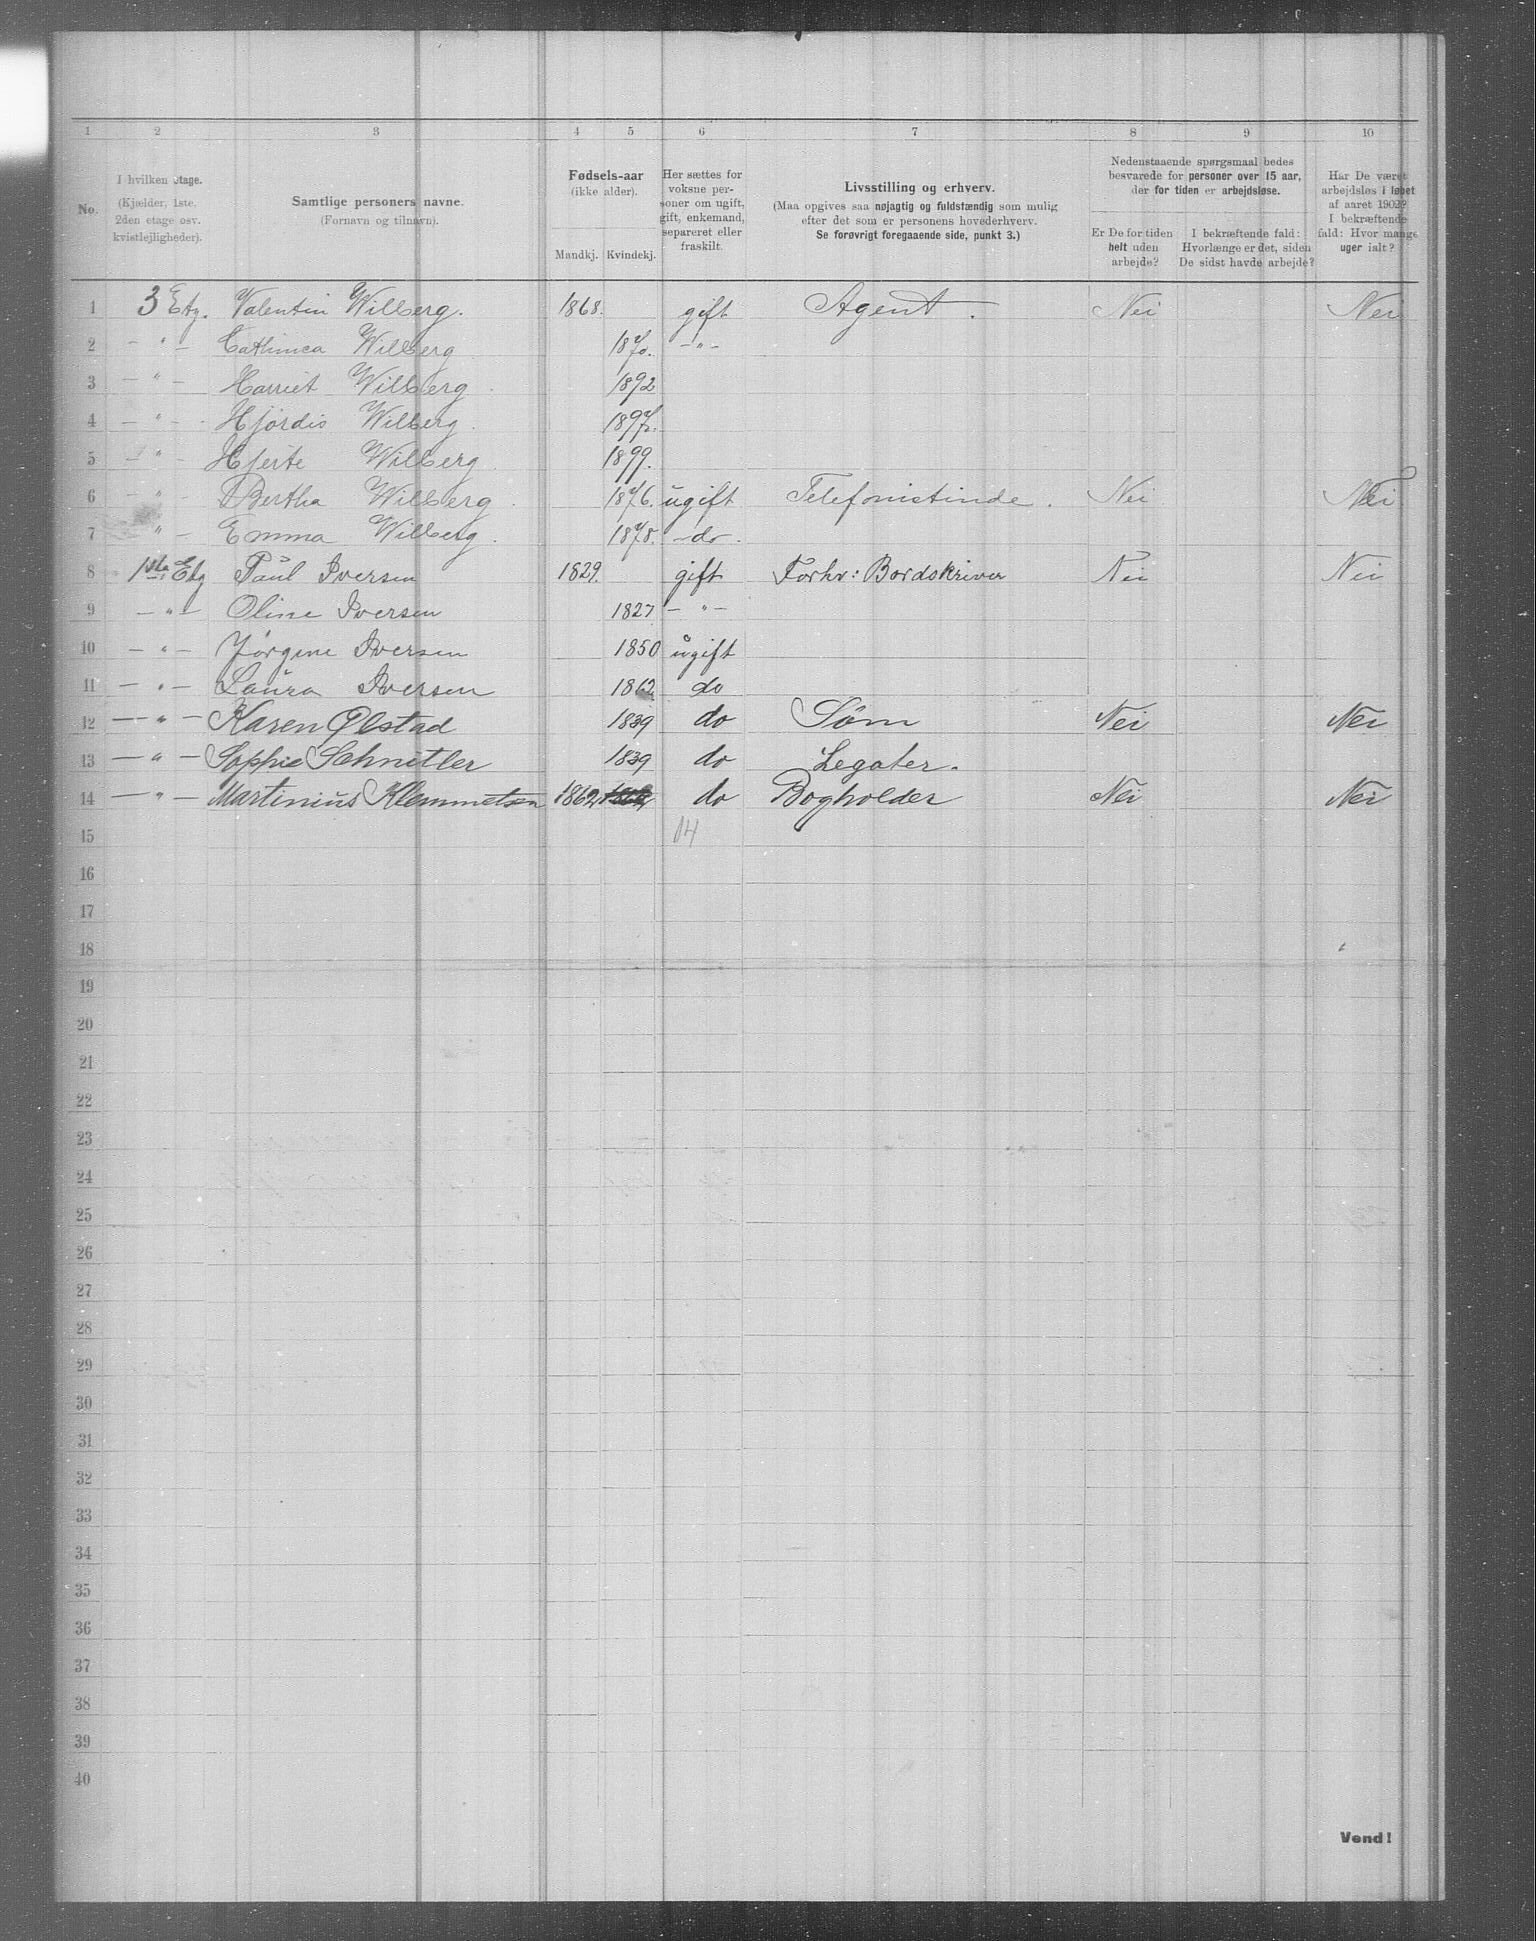 1 2 3 4 5 6 7 8 9 10
No.
I hvilken etage.
(Kjælder, 1ste.
2den etage osv.
kvistlejligheder).
Samtlige personers navne.
(Fornavn og tilnavn).
Fødsels-aar
(ikke alder).
Mandkj. Kvindekj.
Her sættes for
voksne per-
soner om ugift,
gift, enkemand,
separeret eller
fraskilt.
Livsstilling og erhverv.
(Maa opgives saa nøjagtig og fuldstændig som mulig
efter det som er personens hovederhverv.
Se forøvrigt foregaaende side, punkt 3.)
Nedenstaaende spørgsmaal bedes
besvarede for personer over 15 aar,
der for tiden er arbejdsløse.
Er De for tiden
helt uden
arbejde?
I bekræftende fald:
Hvorlænge er det, siden
De sidst havde arbejde?
Har De været
arbejdsløs i løbet
af aaret 1902?
I bekræftende
fald: Hvor mange
uger ialt?
1 3 Etg. Valentin Wilberg. 1868. gift Agent. Nei Nei
2 - " - Cathinca Wilberg 1870. - " -
3 - " - Harriet Wilberg. 1892
4 - " - Hjördis Wilberg. 1897.
5 - " - Hjerte Wilberg 1899.
6 - " - Bertha Wilberg. 1876. ugift Telefonistinde. Nei Nei
7 " - Emma Wilberg. 1878. - do.
8 1ste Etg Paul Iversen 1829. gift Forhv: Bordskriver Nei Nei
9 - " - Oline Iversen 1827 - " -
10 - " - Jørgine Iversen 1850 ugift
11 - " - Laura Iversen 1862 do
12 - " - Karen Ølstad 1839 do Søm Nei Nei
13 - " - Sophie Schnitler 1839 do Legater.
14 - " - Martinius Klemmetsen 1862 do Bogholder Nei Nei
15 14
16
17
18
19
20
21
22
23
24
25
26
27
28
29
30
31
32
33
34
35
36
37
38
39
40
Vend!